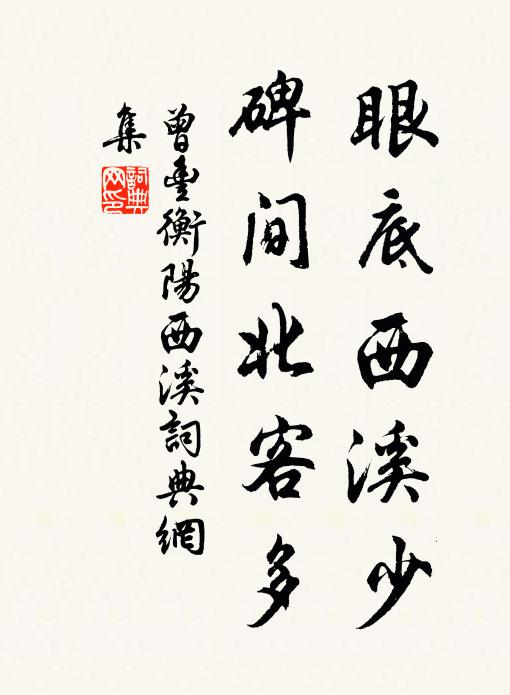 眼底西溪少
碑间北客多
曾豊衡陽西溪詞典網
集
詞典網印